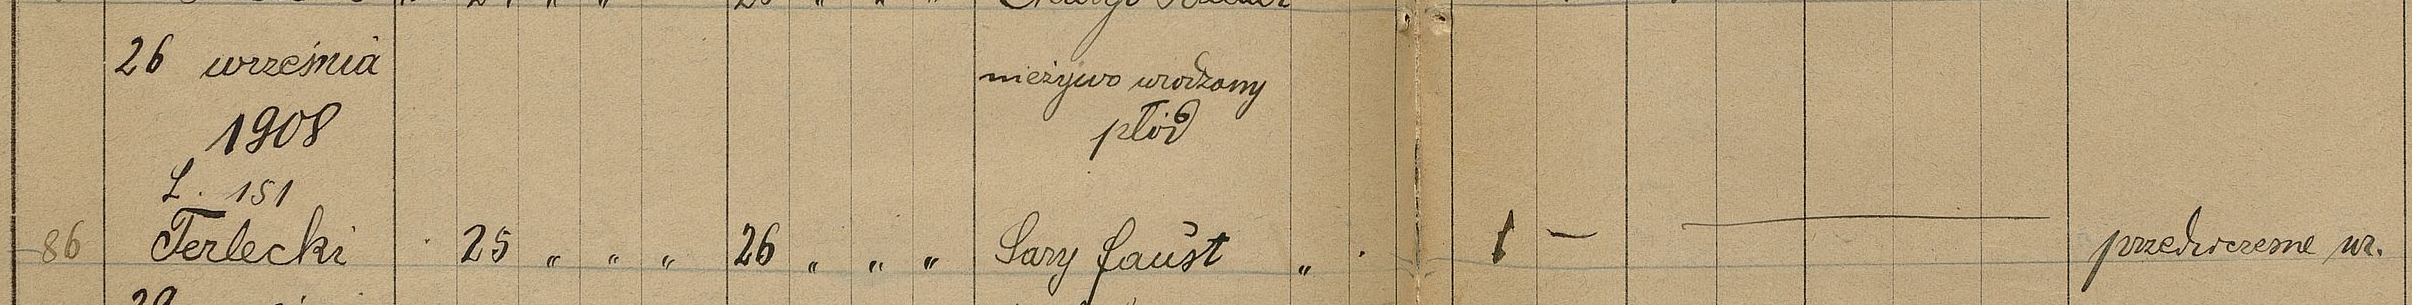 26 września
1908
L. 151
86 Terlecki 25 " " " 26 " " "
nieżywo urodzony
płód
Sary Faust " 1 —
przedwczesne ur.